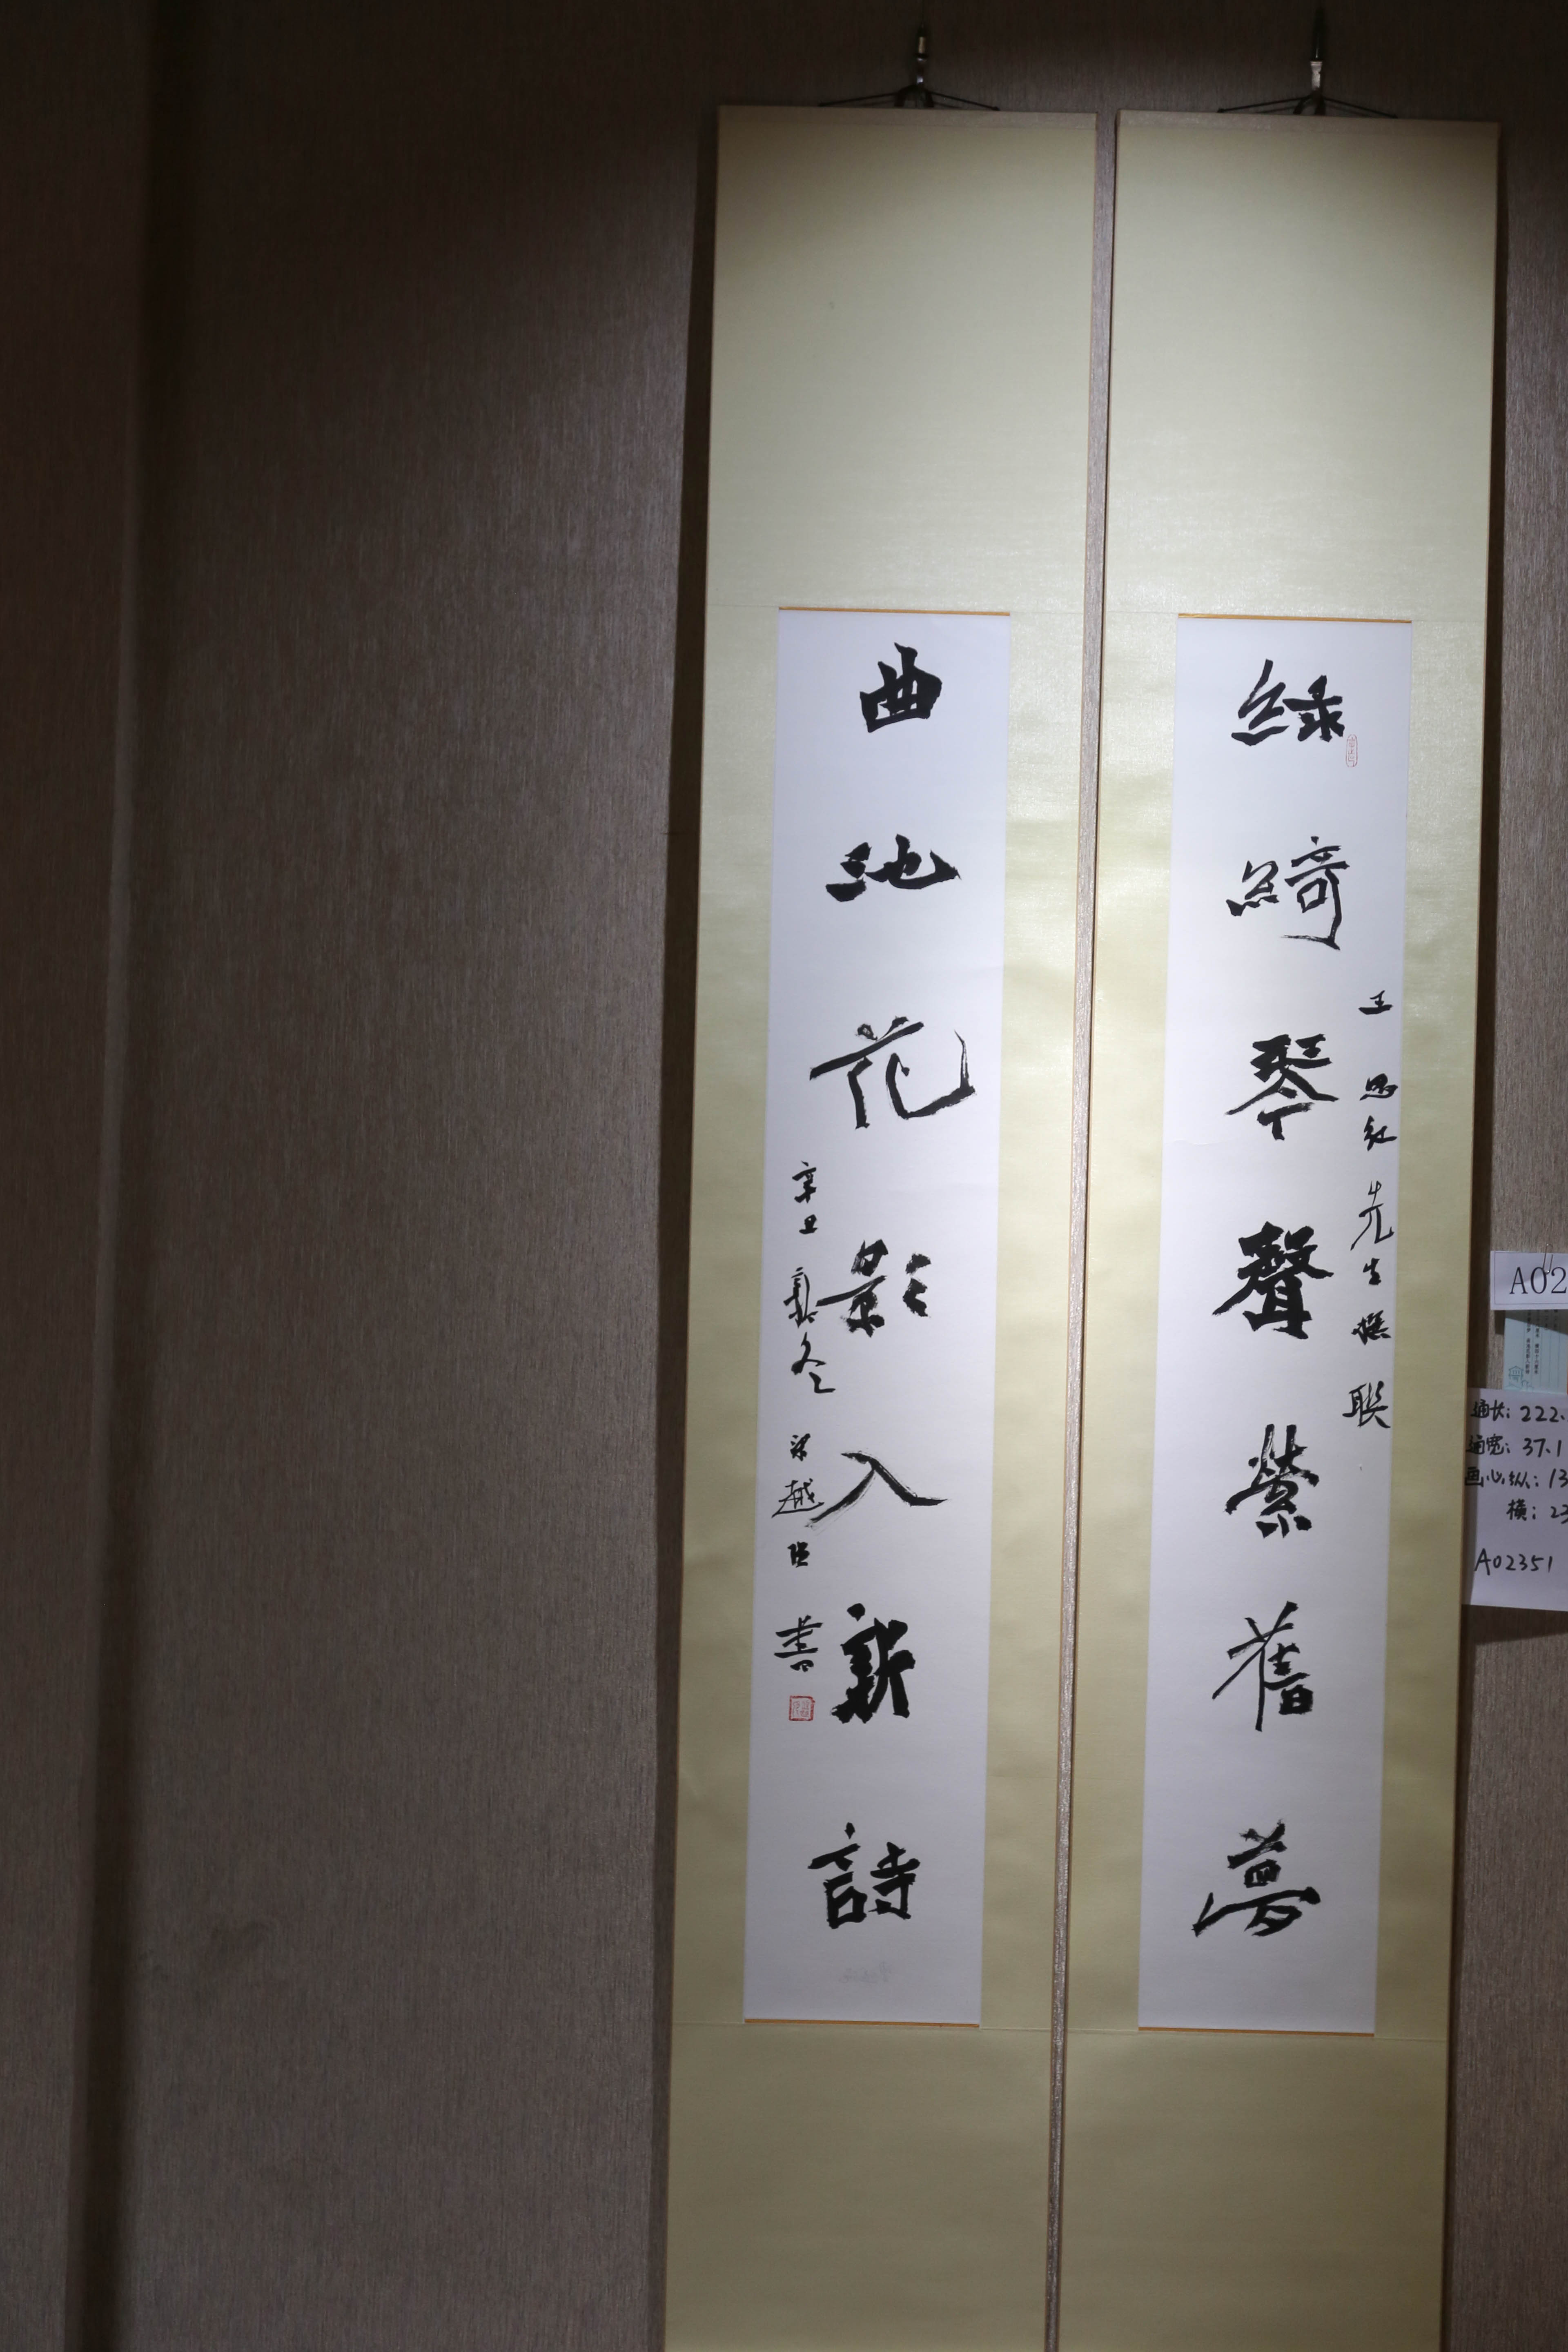 綠綺琴聲縈舊夢
王
先生撰联
曲池花影入新詩
辛丑
越
書
A02
通长: 222.
通宽: 37.1
画心纵: 13
横: 23
A02351